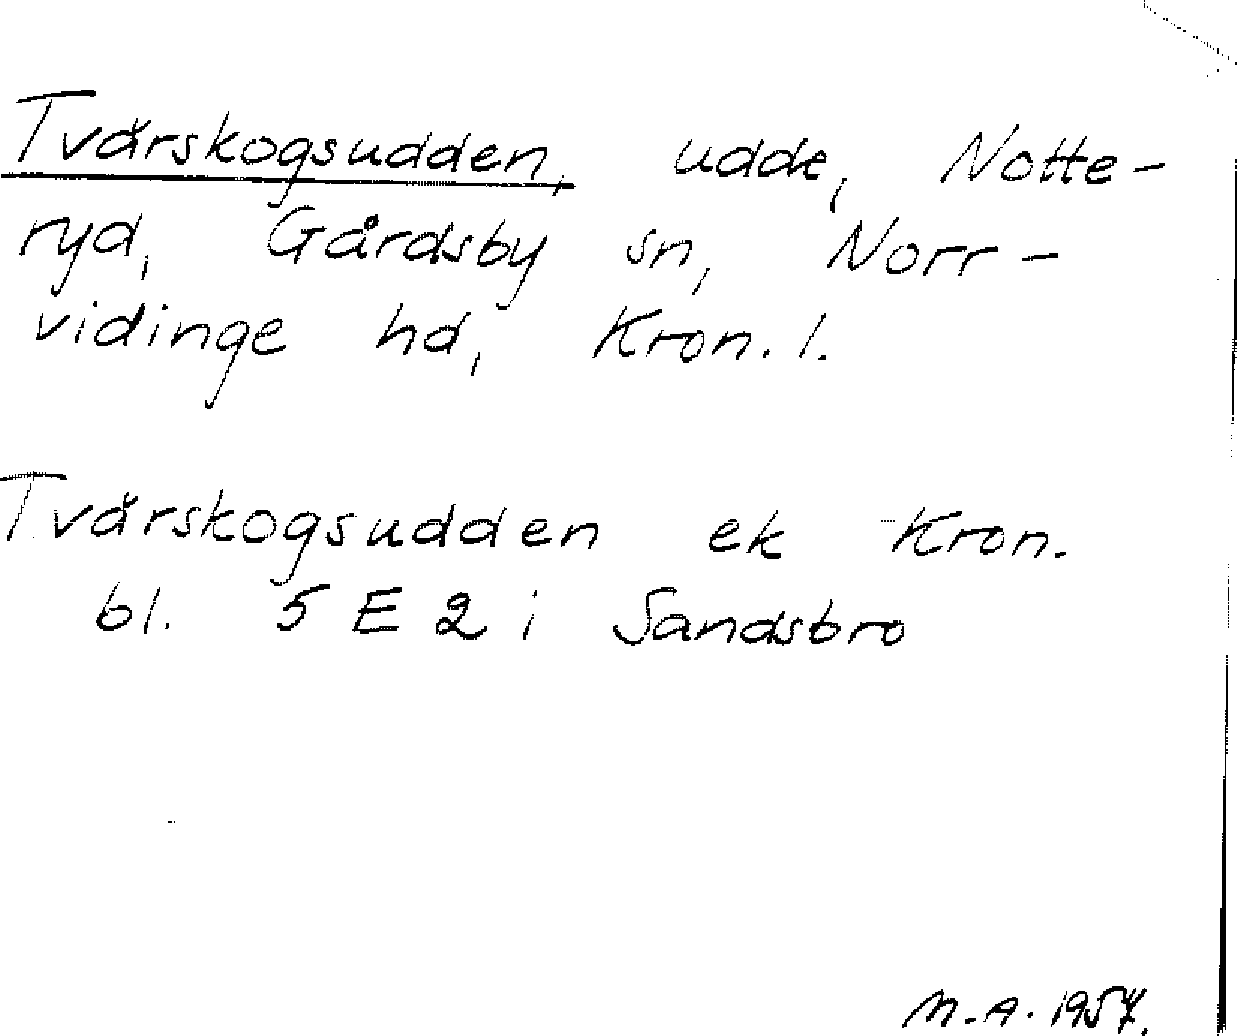 Tvärskogsudden, udde, Notte-
ryd, Gårdsby sn, Norr-
vidinge hd, Kron. l.
Tvärskogsudden ek Kron.
bl. 5 E 2 i Sandsbro
M.A. 1957.